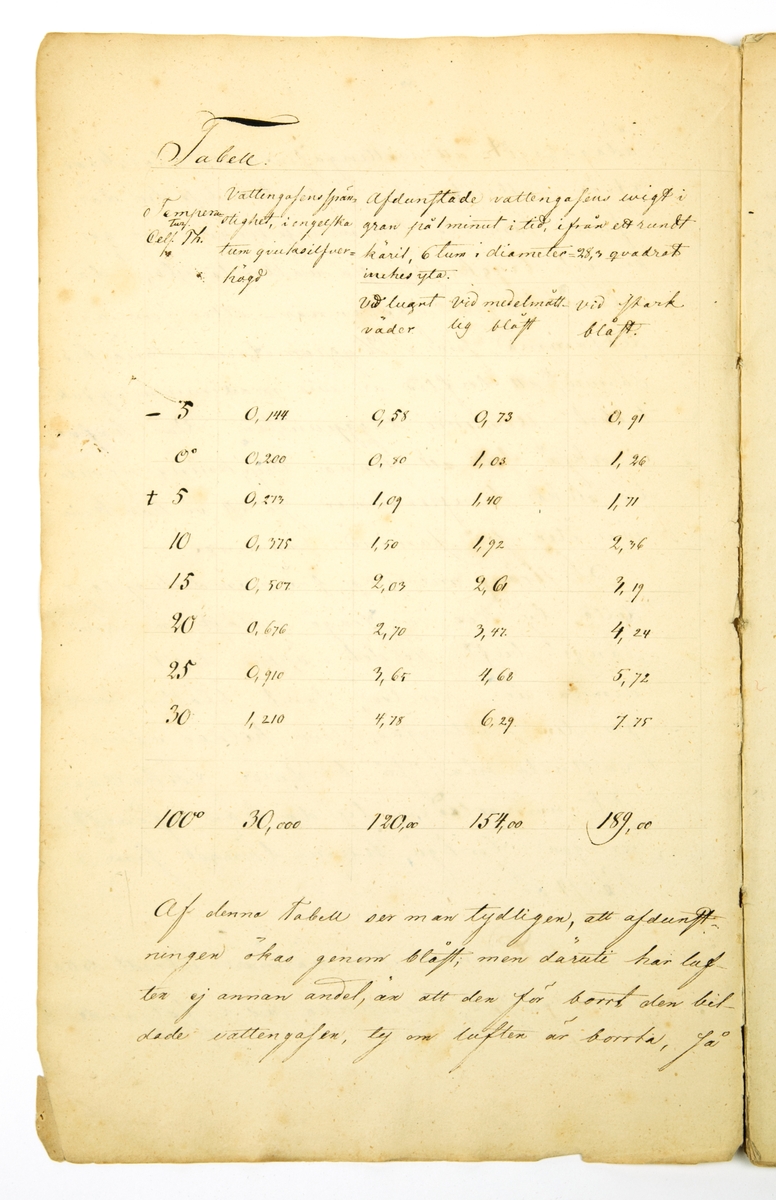 Tabell.
Tempera-
tur
Cels. Th.
Vattengasens spän-
stighet, i engelska
tum qvicksilfver-
högd
Afdunstade vattengasens wigt i
gran på 1 minut i tid, ifrån ett rundt
käril, 6 tum i diameter = 28,3 quadrat
inches yta.
Vid lugnt
väder
Vid medelmått-
lig blåst
vid stark
blåst.
– 5 0,144 0,58 0,73 0,91
0° 0,200 0,80 1,03 1,26
+ 5 0,273 1,09 1,40 1,71
10 0,375 1,50 1,92 2,36
15 0,507 2,03 2,61 3,19
20 0,676 2,70 3,47 4,24
25 0,910 3,65 4,68 5,72
30 1,210 4,78 6,29 7.75
100° 30,000 120,00 154,00 189,00
Af denna Tabell ser man tydligen, att afdunst-
ningen ökas genom blåst, men däruti har luf-
ten ej annan andel, än att den för borrt den bil-
dade vattengasen, ty om luften är borrta, så